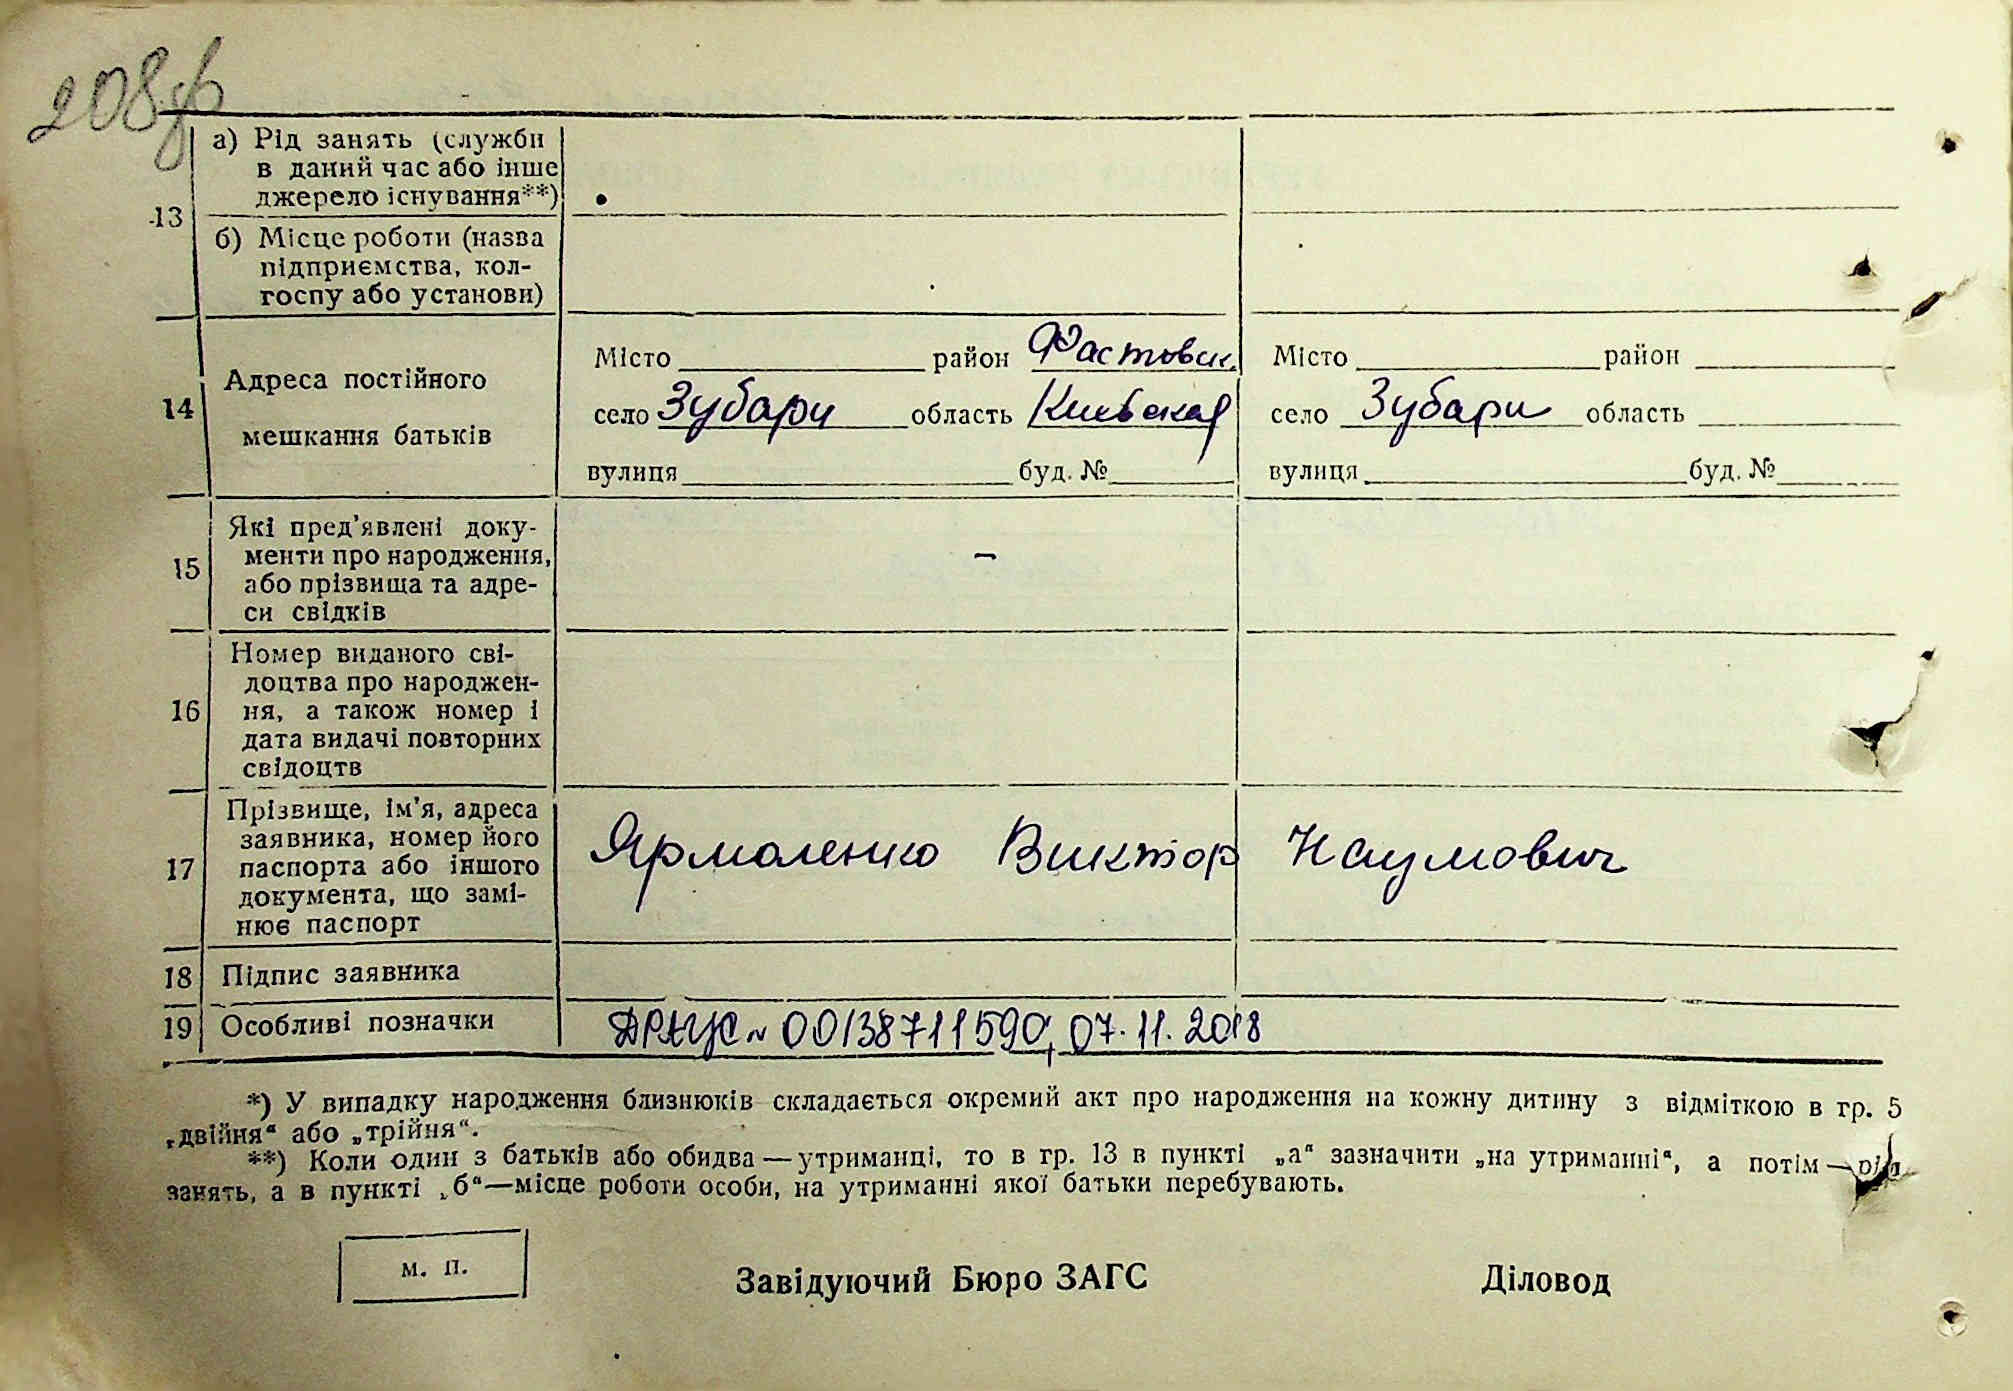 208зв
13
а) Рід занять (служби
в даний час або інше
джерело існування**)
б) Місце роботи (назва
підприємства, кол-
госпу або установи)
14
Адреса постійного
мешкання батьків
Місто район Фастовск.
село Зубари область Киевская
вулиця буд. №
Місто район
село Зубари область
вулиця буд. №
15
Які пред'явлені доку-
менти про народження,
або прізвища та адре-
си свідків
–
16
Номер виданого сві-
доцтва про народжен-
ня, а також номер і
дата видачі повторних
свідоцтв
17
Прізвище, ім'я, адреса
заявника, номер його
паспорта або іншого
документа, що замі-
нює паспорт
Ярмоленко Виктор Наумович
18 Підпис заявника
19 Особливі позначки
ДРАЦС № 00138711590, 07.11.2018
*) У випадку народження близнюків складається окремий акт про народження на кожну дитину з відміткою в гр. 5
„двійня“ або „трійня“.
**) Коли один з батьків або обидва—утриманці, то в гр. 13 в пункті „а“ зазначити „на утриманні“, а потім—рід
занять, а в пункті „б“—місце роботи особи, на утриманні якої батьки перебувають.
м. п.
Завідуючий Бюро ЗАГС
Діловод